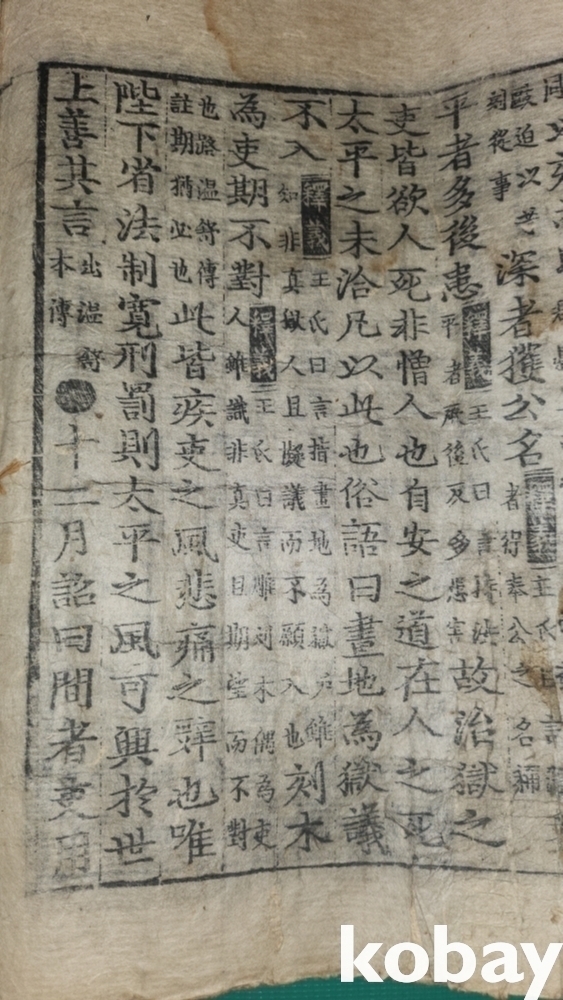 深者獲公名 釋義 者得奉公之名稱
平者多後患 釋義 王氏曰言持法平者厥後反多患害 故治獄之
吏皆欲人死非憎人也自安之道在人之死
太平之未洽凡以此也俗語曰畫地為獄議
不入 釋義 王氏曰言指畫地為獄戶雖如非真獄人且擬議而不願入也 刻木
為吏期不對 釋義 王氏曰言雖刻木偶為吏人雖識非真吏且期望而不對
也路温舒傳註期猶必也 此皆疾吏之風悲痛之辭也唯
陛下省法制寬刑罰則太平之風可興於世
上善其言 出温舒本傳 十二月詔曰間者吏用
kobay